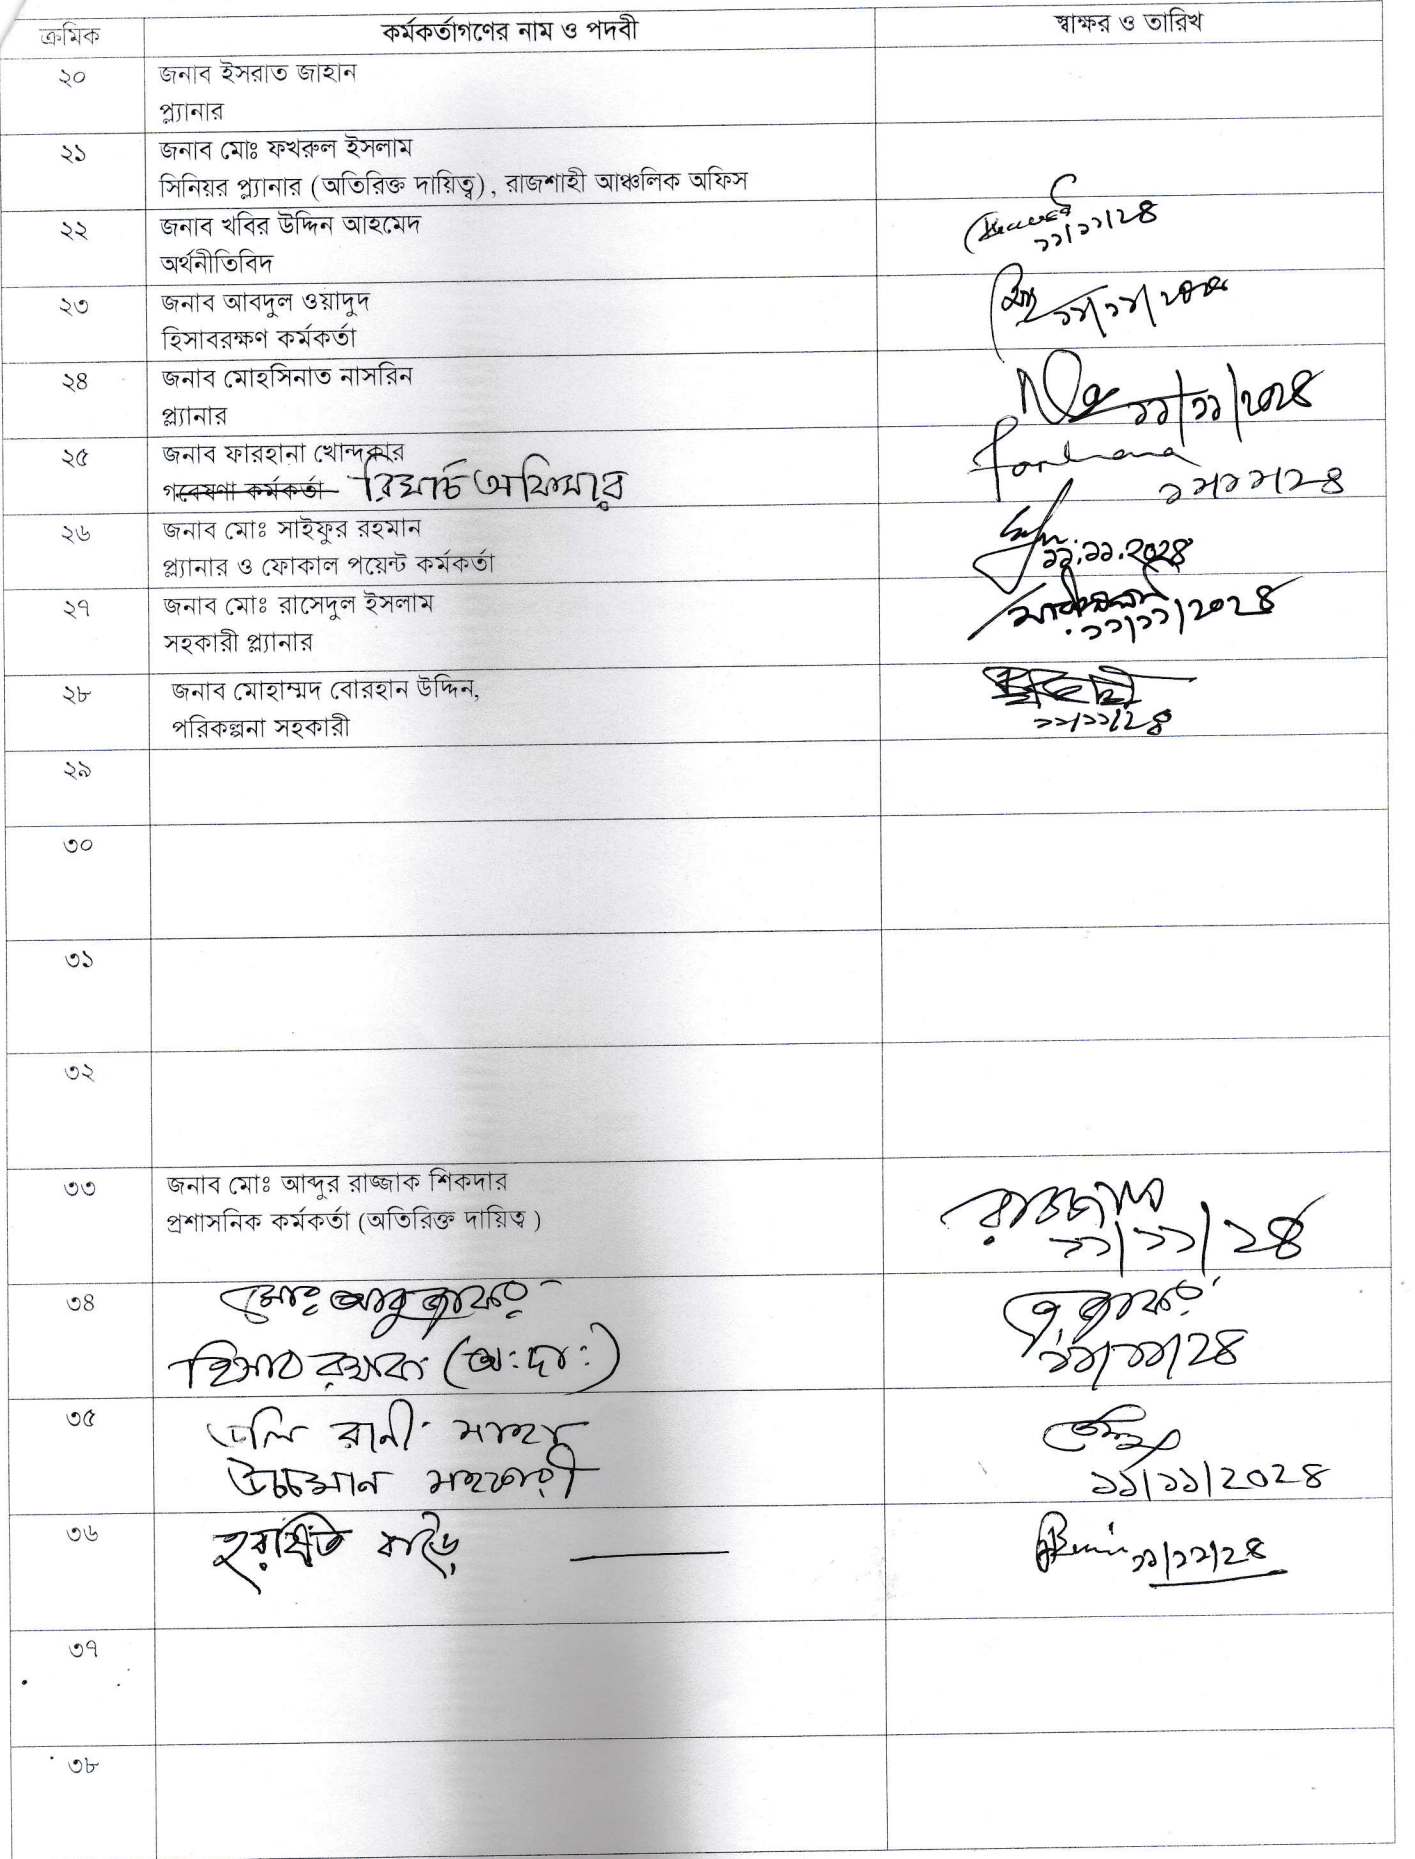 ক্রমিক কর্মকর্তাগণের নাম ও পদবী স্বাক্ষর ও তারিখ
২০ জনাব ইসরাত জাহান
প্ল্যানার
২১ জনাব মোঃ ফখরুল ইসলাম
সিনিয়র প্ল্যানার (অতিরিক্ত দায়িত্ব), রাজশাহী আঞ্চলিক অফিস
২২ জনাব খবির উদ্দিন আহমেদ
অর্থনীতিবিদ ১১/১১/২৪
২৩ জনাব আবদুল ওয়াদুদ
হিসাবরক্ষণ কর্মকর্তা ১১/১১/২০২৪
২৪ জনাব মোহসিনাত নাসরিন
প্ল্যানার ১১/১১/২০২৪
২৫ জনাব ফারহানা খোন্দকার Farhana
গবেষণা কর্মকর্তা রিসার্চ অফিসার ১১/১১/২৪
২৬ জনাব মোঃ সাইফুর রহমান
প্ল্যানার ও ফোকাল পয়েন্ট কর্মকর্তা ১১.১১.২০২৪
২৭ জনাব মোঃ রাসেদুল ইসলাম
সহকারী প্ল্যানার ১১/১১/২০২৪
২৮ জনাব মোহাম্মদ বোরহান উদ্দিন,
পরিকল্পনা সহকারী ১১/১১/২৪
২৯
৩০
৩১
৩২
৩৩ জনাব মোঃ আব্দুর রাজ্জাক শিকদার রাজ্জাক
প্রশাসনিক কর্মকর্তা (অতিরিক্ত দায়িত্ব ) ১১/১১/২৪
৩৪ মোঃ আবু জাফর
হিসাব রক্ষক (অঃদাঃ) ১১/১১/২৪
৩৫ ডলি রানী সাহা
উচ্চমান সহকারী ১১/১১/২০২৪
৩৬ বাড়ৈ ১১/১১/২৪
৩৭
৩৮